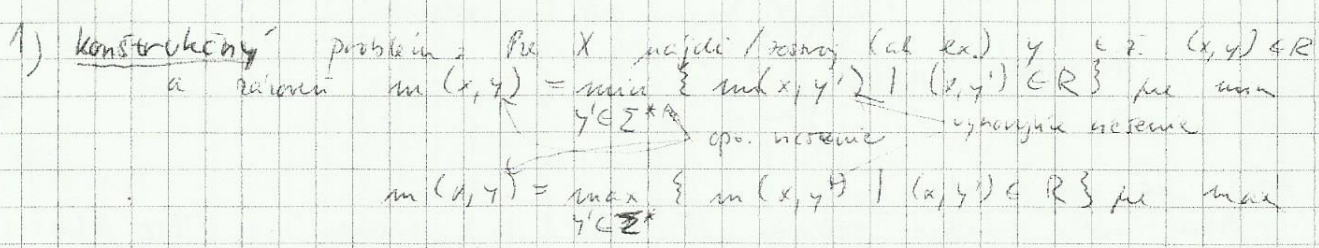 1) konštrukčný problém: Pre X nájdi / zostroj (ak ex.) y t. ž. (x,y) ∈ R
a zároveň m(x,y) = min { m(x,y') | (x,y') ∈ R } pre min
y' ∈ Σ*
opt. riešenie vyhovujúce riešenie
m(x,y) = max { m(x,y') | (x,y') ∈ R } pre max
y' ∈ Σ*